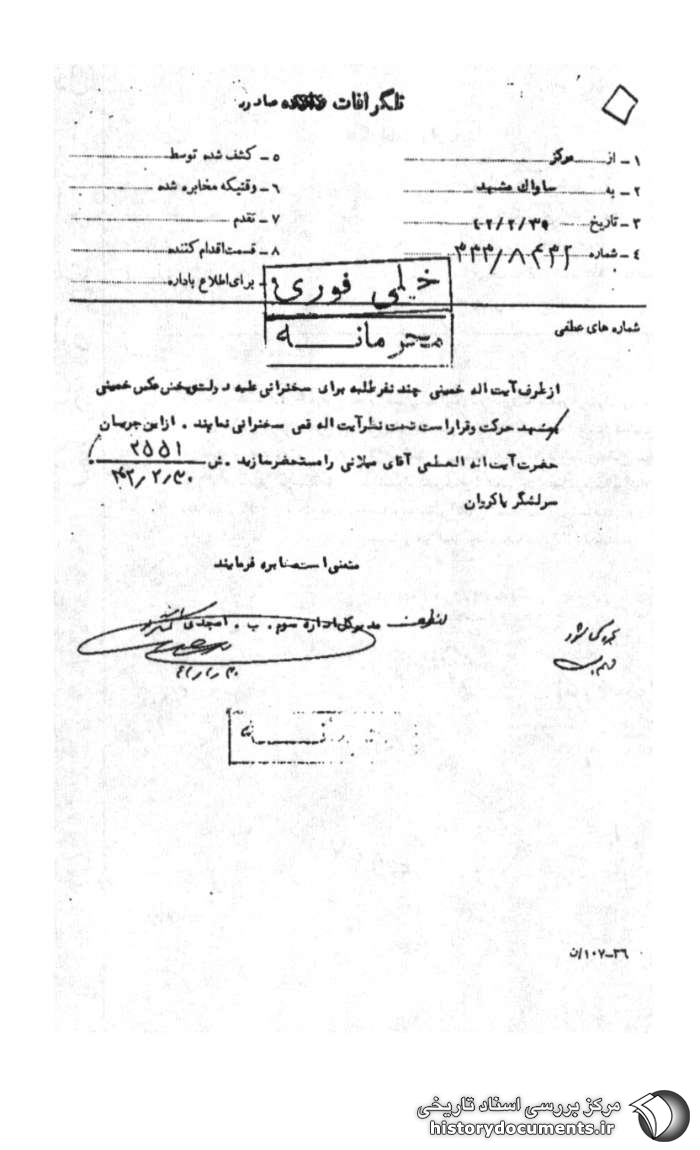 تلگرافات صادره
۱ـ از مرکز
۲ـ به ساواک مشهد
۳ـ تاریخ ۴۲/۲/۳۰
۴ـ شماره ۳۳۳/۸۴۳۲
۵ـ کشف شده توسط
۶ـ وقتیکه مخابره شده
۷ـ تقدم
۸ـ قسمت اقدام کننده
ـ برای اطلاع باداره
خیلی فوری
محرمانه
شماره های عطفی
از طرف آیت اله خمینی چند نفر طلبه برای سخنرانی علیه دولت و پخش عکس خمینی
بمشهد حرکت و قرار است تحت نظر آیت اله قمی سخنرانی نمایند . از این جریان
حضرت آیت اله العظمی آقای میلانی را مستحضر سازید . ش ۲۵۵۱
۴۲/۲/۳۰
سرلشگر پاکروان
متمنی است مخابره فرمایند
از طرف مدیر کل اداره سوم . ب . امجدی
۴۲/۲/۳۰
۳۶ـ۱۰۷/ن
مرکز بررسی اسناد تاریخی
historydocuments.ir